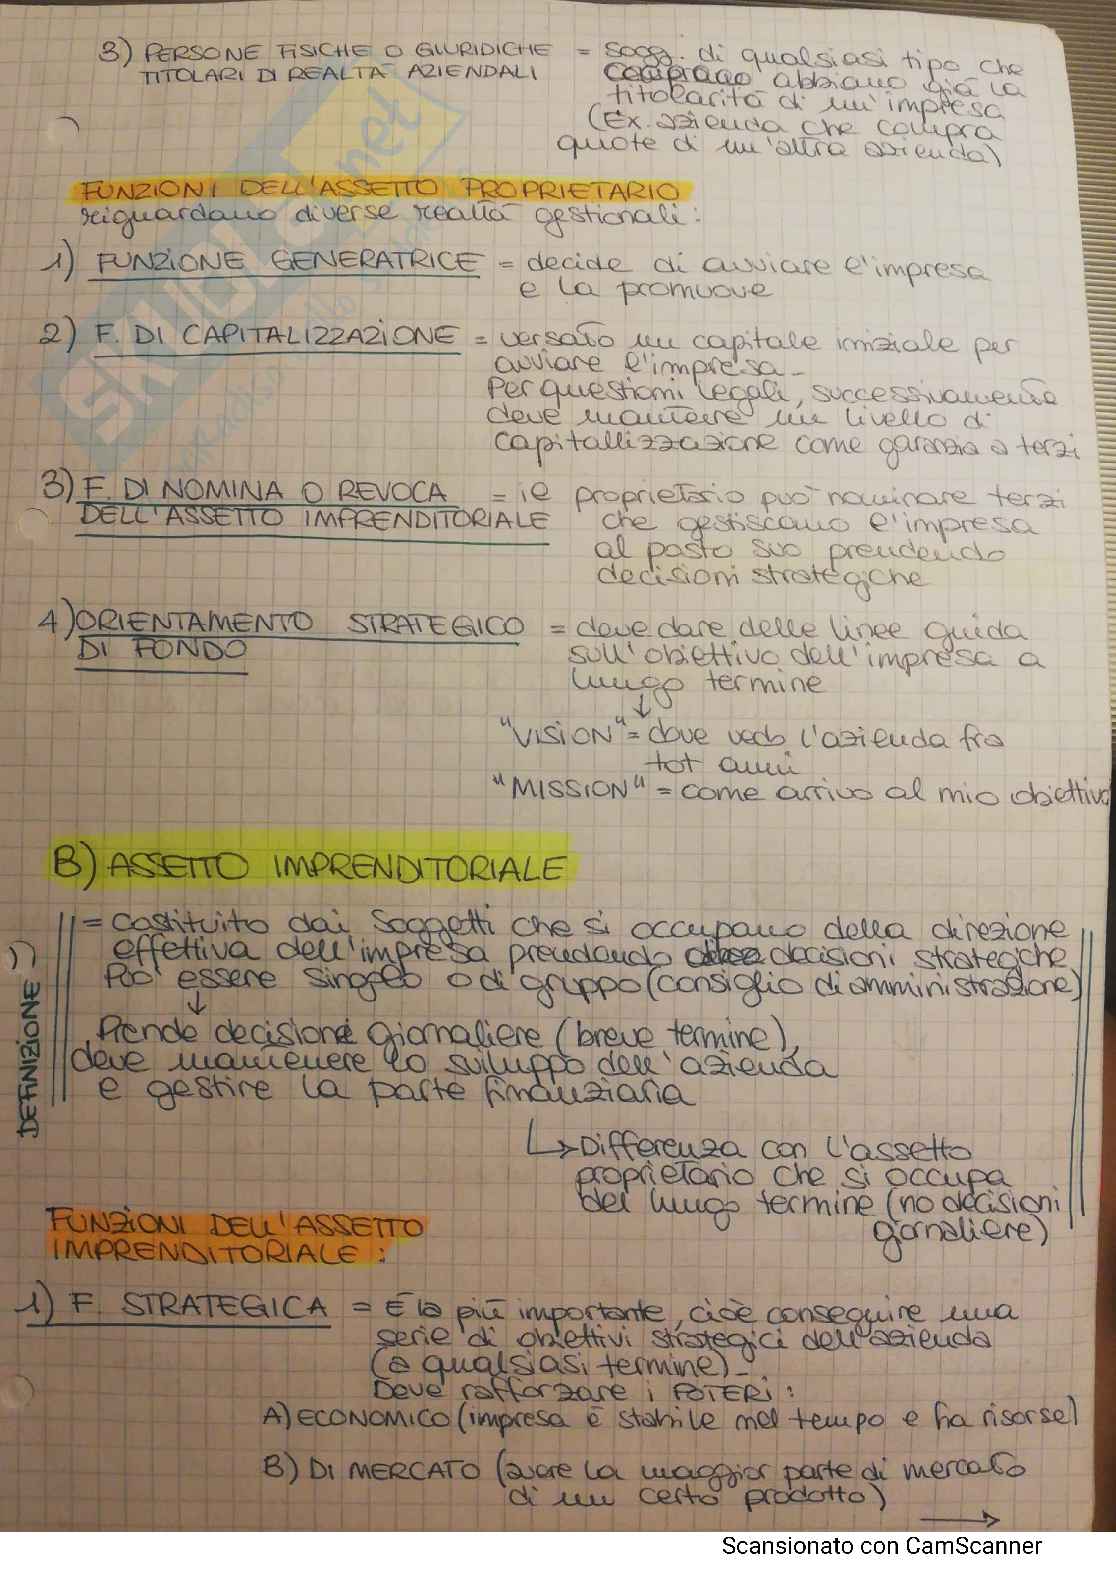 3) PERSONE FISICHE O GIURIDICHE = Sogg. di qualsiasi tipo che
TITOLARI DI REALTÀ AZIENDALI abbiano già la
titolarità di un'impresa
(Ex. azienda che compra
quote di un'altra azienda)
FUNZIONI DELL'ASSETTO PROPRIETARIO
riguardano diverse realtà gestionali:
1) FUNZIONE GENERATRICE = decide di avviare l'impresa
e la promuove
2) F. DI CAPITALIZZAZIONE = versato un capitale iniziale per
avviare l'impresa.
Per questioni legali, successivamente
deve mantenere un livello di
capitallizzazione come garanzia a terzi
3) F. DI NOMINA O REVOCA = il proprietario può nominare terzi
DELL'ASSETTO IMPRENDITORIALE che gestiscano l'impresa
al posto suo prendendo
decisioni strategiche
4) ORIENTAMENTO STRATEGICO = deve dare delle linee guida
DI FONDO sull'obiettivo dell'impresa a
lungo termine
↓
"VISION" = dove vedo l'azienda fra
tot anni
"MISSION" = come arrivo al mio obiettivo
B) ASSETTO IMPRENDITORIALE
DEFINIZIONE
= costituito dai soggetti che si occupano della direzione
effettiva dell'impresa prendendo decisioni strategiche
Può essere singolo o di gruppo (consiglio di amministrazione)
↓
Prende decisioni giornaliere (breve termine),
deve mantenere lo sviluppo dell'azienda
e gestire la parte finanziaria
↳ Differenza con l'assetto
proprietario che si occupa
del lungo termine (no decisioni
giornaliere)
FUNZIONI DELL'ASSETTO
IMPRENDITORIALE:
1) F. STRATEGICA = È la più importante, cioè conseguire una
serie di obiettivi strategici dell'azienda
(a qualsiasi termine).
Deve rafforzare i POTERI:
A) ECONOMICO (impresa è stabile nel tempo e ha risorse)
B) DI MERCATO (avere la maggior parte di mercato
di un certo prodotto)
→
Scansionato con CamScanner